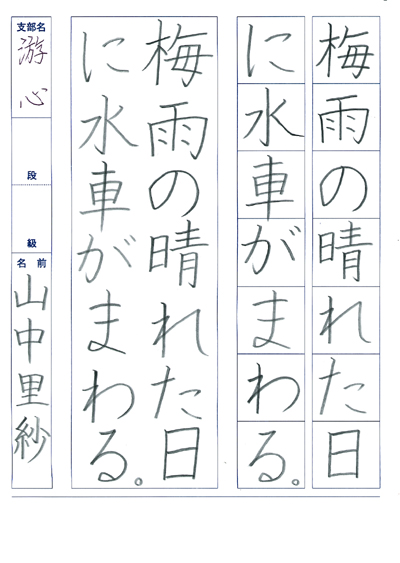 梅雨の晴れた日
に水車がまわる。
梅雨の晴れた日
に水車がまわる。
支部名
游心
段
級
名前
山中里紗